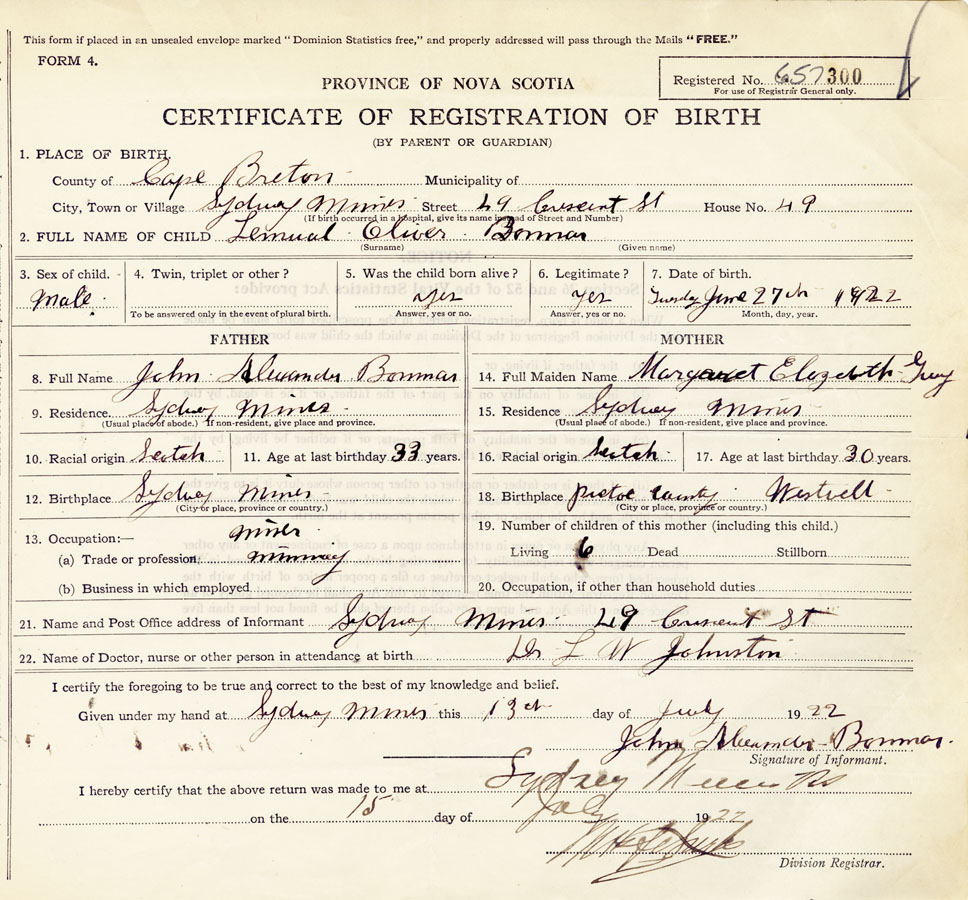 This form if placed in an unsealed envelope marked "Dominion Statistics free," and properly addressed will pass through the Mails "FREE."
FORM 4.
Registered No. 657 300
For use of Registrar General only.
PROVINCE OF NOVA SCOTIA
CERTIFICATE OF REGISTRATION OF BIRTH
(BY PARENT OR GUARDIAN)
1. PLACE OF BIRTH,
County of Cape Breton Municipality of
City, Town or Village Sydney Mines Street 49 Crescent St House No. 49
(If birth occurred in a hospital, give its name instead of Street and Number)
2. FULL NAME OF CHILD Lemual Oliver Bonmar
(Surname) (Given name)
3. Sex of child. 4. Twin, triplet or other? 5. Was the child born alive? 6. Legitimate? 7. Date of birth.
Male yes yes Tuesday June 27th 1922
To be answered only in the event of plural birth. Answer, yes or no. Answer, yes or no. Month, day, year.
FATHER MOTHER
8. Full Name John Alexander Bonmar 14. Full Maiden Name Margaret Elozebth Gray
9. Residence. Sydney Mines 15. Residence Sydney Mines
(Usual place of abode.) If non-resident, give place and province. (Usual place of abode.) If non-resident, give place and province.
10. Racial origin Scotch 11. Age at last birthday 33 years. 16. Racial origin Scotch 17. Age at last birthday 30 years.
12. Birthplace Sydney Mines 18. Birthplace Pictoe County Westvell
(City or place, province or country.) (City or place, province or country.)
13. Occupation:— Miner 19. Number of children of this mother (including this child.)
(a) Trade or profession Living 6 Dead Stillborn
(b) Business in which employed 20. Occupation, if other than household duties
21. Name and Post Office address of Informant Sydney Mines 49 Crescent St
22. Name of Doctor, nurse or other person in attendance at birth Dr L W Johnston
I certify the foregoing to be true and correct to the best of my knowledge and belief.
Given under my hand at Sydney Mines this 13th day of July 1922
John Alexander Bonmar.
Signature of Informant.
I hereby certify that the above return was made to me at Sydney Mines NS
on the 15 day of July 1922
Division Registrar.